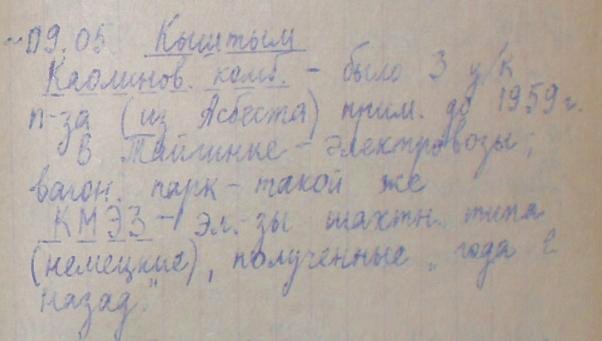 09.05 Кыштым
Каолинов. комб. - было 3 у/к
п-за (из Асбеста) прим. до 1959 г.
В Тайгинке - электровозы,
вагон. парк - такой же
КМЭЗ - эл.-зы шахтн. типа
(немецкие), полученные „года 2
назад"